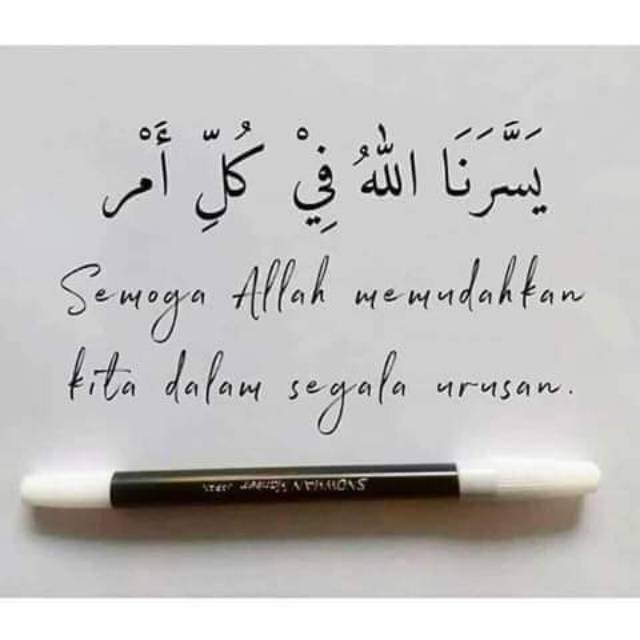 يَسَّرَنَا اللّٰهُ فِيْ كُلِّ أَمْر
Semoga Allah memudahkan
kita dalam segala urusan.
SNOWMAN